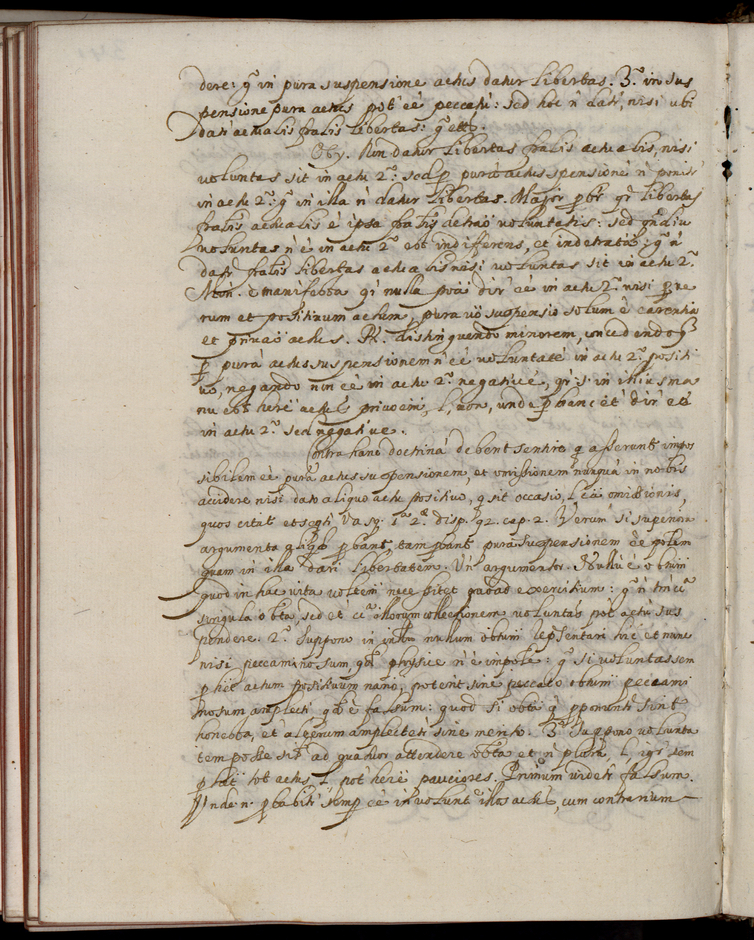 dere: g° in pura suspensione actus datur libertas. 3.° in sus
pensione pura actus pot' eē peccatū: sed hoc ñ dat', nisi ubi
dat' actualis fralis libertas: g° etc.
Obij. Non datur libertas fralis actualis, nisi
voluntas sit in actu 2.° sed p purā actus suspensionē ñ ponit'
in actu 2.° g° in illa ñ datur libertas. Major pbr qr libertas
fralis actualis ē ipsa fralis voluntatis: sed qndiu
voluntas ñ ē in actu 2.° est indifferens, et g° ñ
dat' fralis libertas actualis nisi voluntas sit in actu 2.°
Min. ē manifesta qr nulla poā dir' eē in actu 2.° nisi p ve
rum et positivum actum, pura vō suspensio solum ē carentia
et privaō actus. R. distinguendo minorem, concedendo q
p purā actus suspensionem ñ eē voluntatē in actu 2.° positi
vo, negando non eē in actu 2.° negativē, qr s. in illius ma
nu est here actus l, non, unde p hanc et' dir' eē
in actu 2.° sed negative.
Contra hanc doctrinā debent sentire q asserunt impos
sibilem eē purā actus suspensionem, et omissionem nunquā in nobis
accidere nisi dato aliquo actu positivo, q sit occasio, l cā omissionis,
quos citat et seqt' Vasq. 1.ª 2.ª disp. 92. cap. 2. Verum si superiora
argumenta q pbant, tam pbant purā suspensionem eē
quam in illa dari libertatem. Un' argumentor. Nullū ē obtum
quod in hac vita voltem necessitet quoad exercitium: g° ñ tm cā
singula obta, sed et' cā illorum collectionem voluntas pot' actū sus
pendere. 2.° Suppono in nullum obtum repsentari hic et nunc
nisi peccaminosum, qd physice ñ ē impole: g° si voluntas sem
p het actum positivum nanc, poterit sine peccato obtum peccami
nosum amplecti qd ē falsum: quod si obta q pponunt' sint
honesta, et' alterum amplectet' sine merito. 3.° Suppono volunta
tem posse sil ad quatuor attendere obta et ñ plura l, igr sem
p het tot actus, l pot' here pauciores. Primum videt' falsum.
Unde n. pbabit' semp eē in volunt.e illos actus, cum contrarium